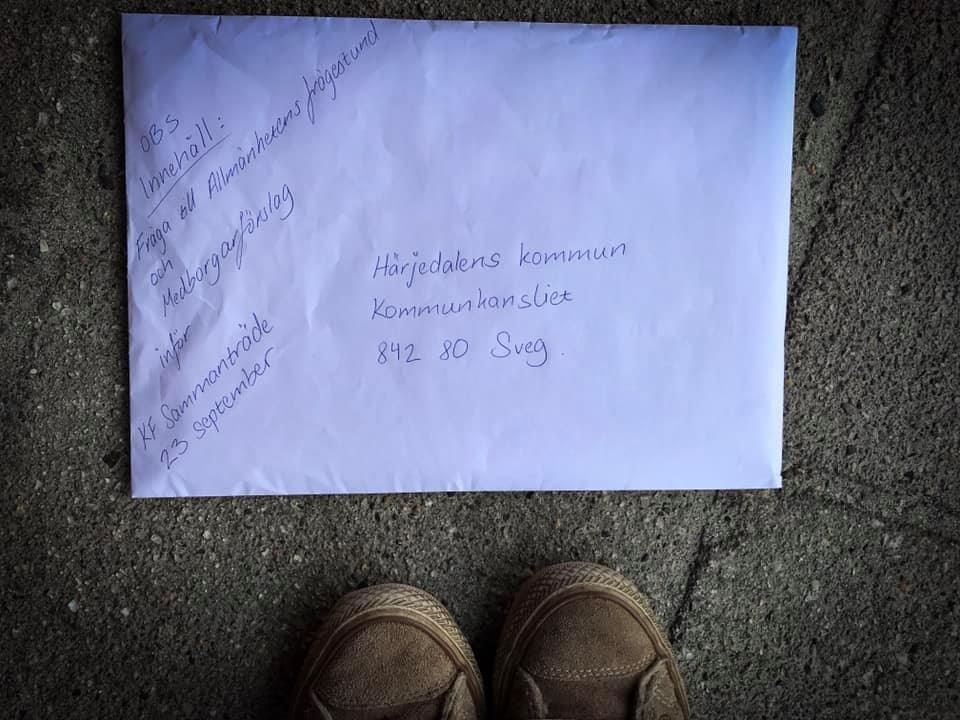 OBS
Innehåll:
Fråga till Allmänhetens frågestund
och
Medborgarförslag
inför
KF Sammanträde
23 september
Härjedalens kommun
Kommunkansliet
842 80 Sveg.